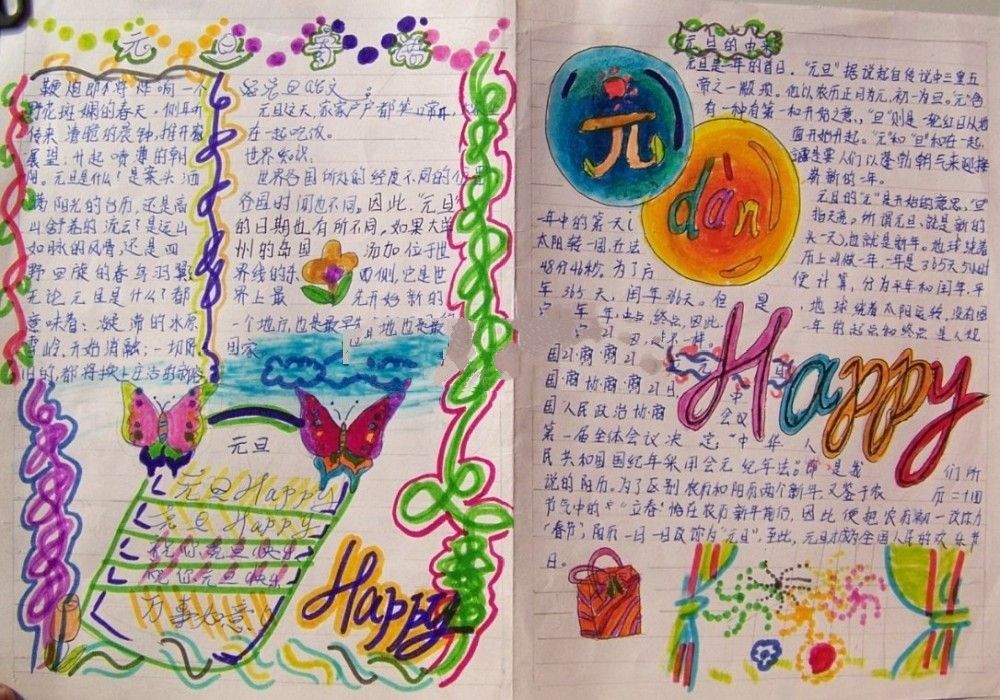 元旦寄语
鞭炮即将炸响一个
野花斑斓的春天,侧耳听
传来清脆的晨钟,推开
展望,升起喷薄的朝
阳。元旦是什么?是案头洒
满阳光的台历,还是高
山舒卷的流云?是远山
如脉的风骨,还是四
野回旋的春鸟羽翼
无论元旦是什么?都
意味着:凝滞的冰原
雪岭,开始消融;一切陈
旧的,都将换上生活的新
元旦这天,家家户户都
在一起吃饭。
世界知识:
世界各国所处的经度不同的位置
各国的时间也不同。因此,“元旦”
的日期也有所不同。如果大洋
州的岛国 汤加位于世
界线的东 西侧,它是世
界上最 先开始新的
一个地方,也是最早 地也是最
国家
元旦
元旦Happy
元旦Happy
祝你元旦快乐
祝你元旦快乐
万事如意
Happy
元旦的由来
元旦是一年的首日。“元旦”据说起自传说中三皇五
帝之一颛顼。他以农历正月为元,初一为旦。“元”含
有一种有第一和开始之意,“旦”则是一轮红日从地
面开始升起。“元”和“旦”和在一起,
就是要人们以蓬勃朝气来迎接
崭新的一年。
元
dàn
元旦的“元”是开始的意思,“旦”
指天亮。所谓元旦,就是新的
一年中的第一天
头一天,也就是新年。地球绕着
太阳转一圈,在法
历上叫做一年,一年是365天5小时
48分46秒,为了方
便计算,分为平年和闰年,平
年365天,闰年366天。但是
地球绕着太阳运转,没有固
年的起点和终点是人规
Happy
国人民政治协商 会议
第一届全体会议决定:“中华人
民共和国国纪年采用公元纪年法。即是我们所
说的阳历。为了区别农历和阳历两个新年,又鉴于农历二十四
节气中的“立春”恰在农历新年前后,因此便把农历初一改称为
“春节”,阳历一月一日改称为“元旦”。至此,元旦才成为全国人民的欢乐节
日。